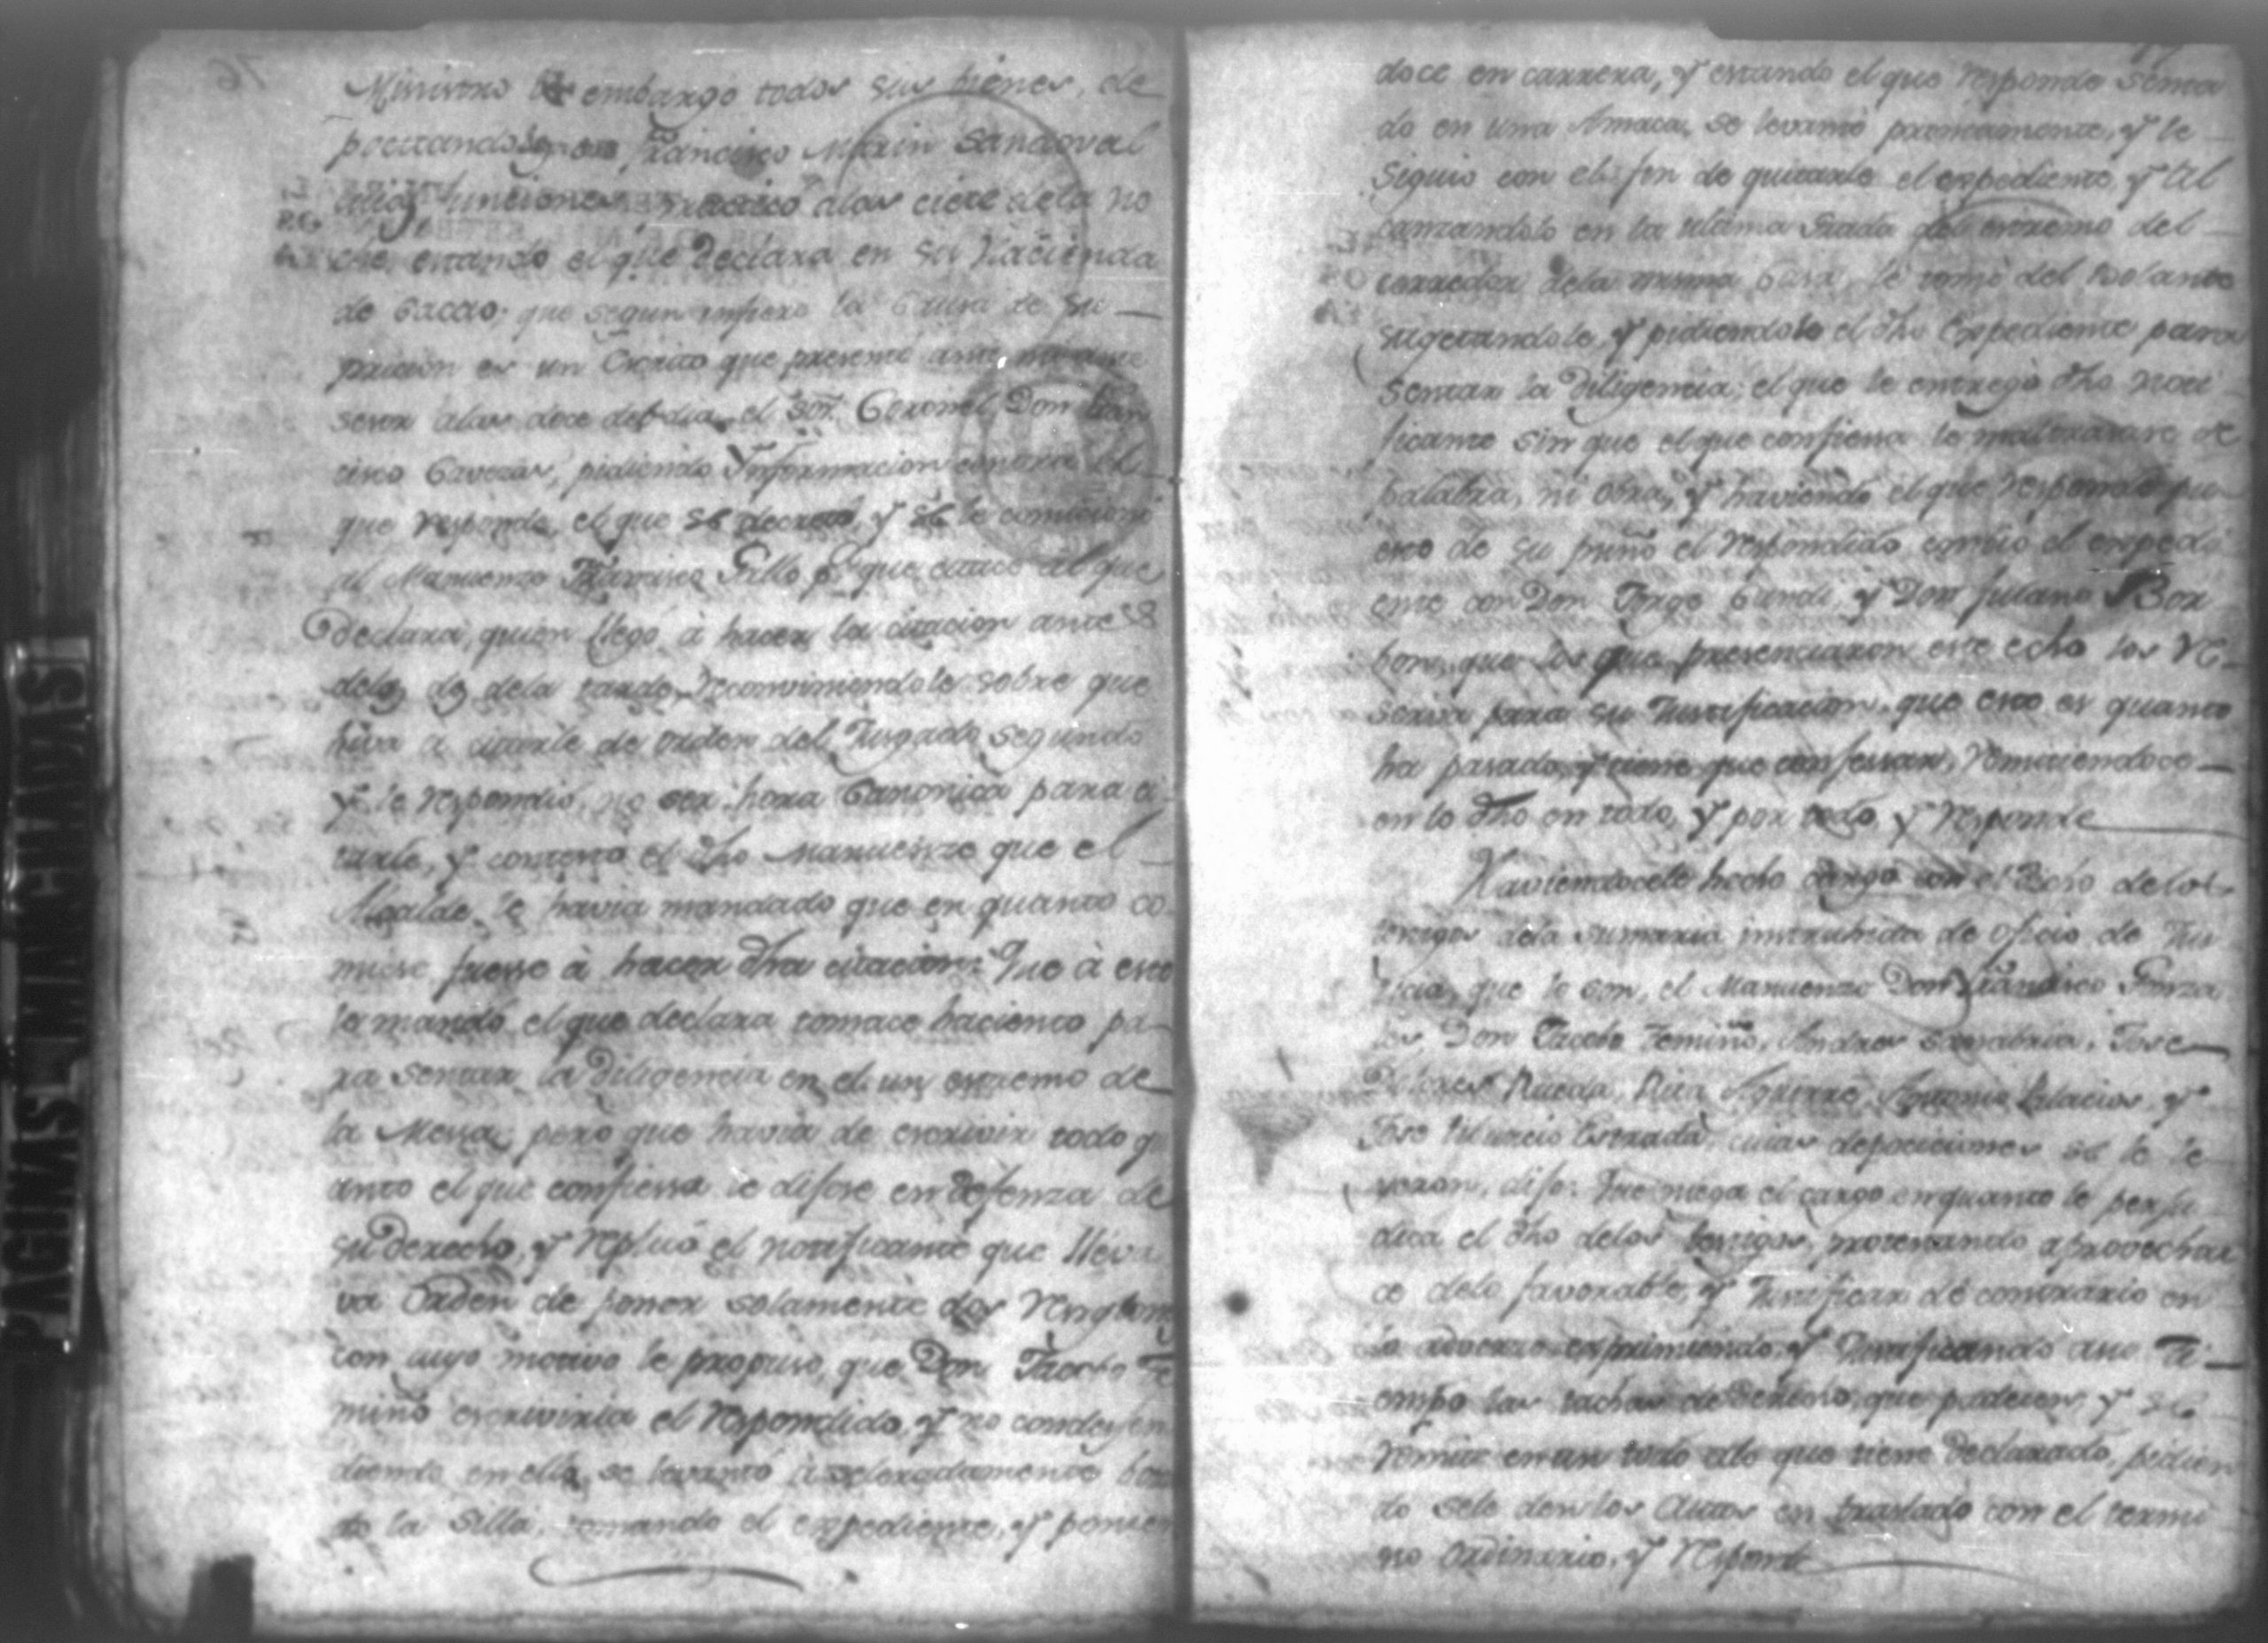 Ministro embargo todos sus bienes, de
pocitandose Francisco Marin Sandoval
funciones practicó alas ciete dela no
che, estando el que declara en su Hacienda
de Cacao; que segun infiero la Causa de su
pricion es un Escrito que presentó ante
señor alas doce del dia, el Sor. Coronel Don Fran
cisco Cavezas, pidiendo Ynformacion contra el
que responde, el que se decretó, y se le comicionó
al Manuense Francisco Gallo pa. que citace al que
declara, quien llegó à hacer la citacion antes
delas dos dela tarde, reconviniendole sobre que
hiva a citarle de orden del Jusgado segundo
y le respondió, no ser hora Canonica para ci
tarle, y contestó el dho Manuense que el
Alcalde le havia mandado que en quanto co
miese fuese à hacer dha citacion: Que à esto
le mandó el que declara tomace haciento pa
ra sentar la diligencia en el un extremo de
la Mesa; pero que havia de escrivir todo qu
anto el que confiesa le dijese en defenza de
su derecho, y replicó el notificante que lléva
va Orden de poner solamente dos renglones
con cuyo motivo le propuso, que Don Jacobo Te
miño escriviria el respondido, y no condesen
diendo en ello, se levantó aseleradamente
de la Silla, tomando el expediente, y ponien
doce en carrera, y estando el que responde senta
do en una Amaca, se levantó prontamente, y le
siguió con el fin de quitarle el expediente, y al
canzandolo en la ultima Grada del extremo del
corredor dela misma Casa, le tomó del volante
sugetandole, y pidiendole el dho Expediente para
sentar la Diligencia, el que le entregó dho noti
ficante sin que el que confiesa le maltratare de
palabra, ni obra, y haviendo el que responde pu
esto de su puño el respondido, embió el expedi
ente con Don Jorge y Don Juliano Bor
bon, que los que presenciaron este echo los re
serva para su Justificacion, que esto es quanto
ha pasado, y tiene que confesar, remitiendoce
en lo dho en todo, y por todo, y responde
Haviendocele hecho cargo con el Dicho delos
testigos dela sumaria instruhida de oficio de Jus
ticia, que lo son, el Manuense Don Francisco Gonza
les, Don Jacobo Temiño, Andres Sanabria, Jose
Dolores Rueda, Rita Aguirre, Antonio Palacios, y
Jose Estrada, cuias deposiciones se le le
yeron, dijo: Que niega el cargo en quanto le perju
dica el dho delos testigos, protestando aprovechar
ce delo favorable, y Justificar de contrario en
lo adverzo exprimiendo, y Justificando asu Ti
empo las tachas de derecho, que padecen, y se
remite en un todo alo que tiene Declarado, pidien
do sele den los Autos en traslado con el termi
no Ordinario, y responde